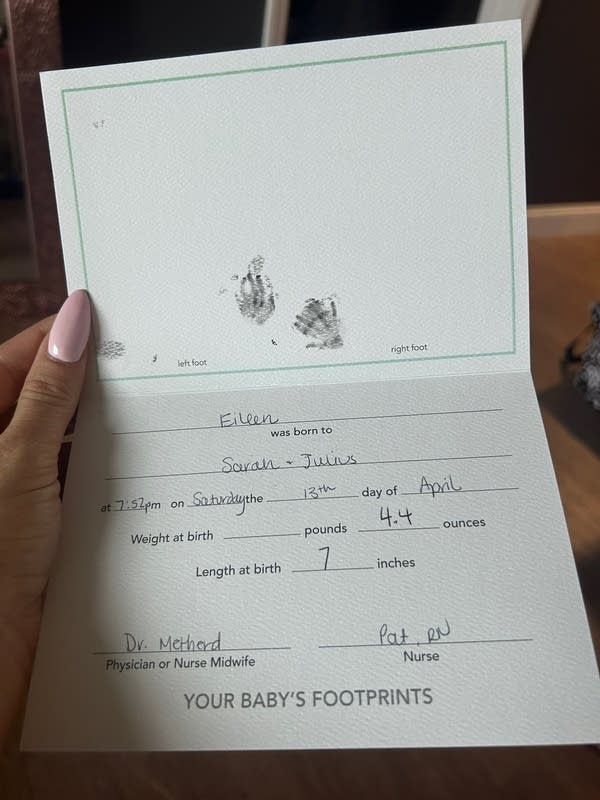 left foot
right foot
Eileen
was born to
Sarah + Julius
at 7:52pm on Saturday the 13th day of April
Weight at birth pounds 4.4 ounces
Length at birth 7 inches
Dr. Metherd Pat, RN
Physician or Nurse Midwife Nurse
YOUR BABY'S FOOTPRINTS